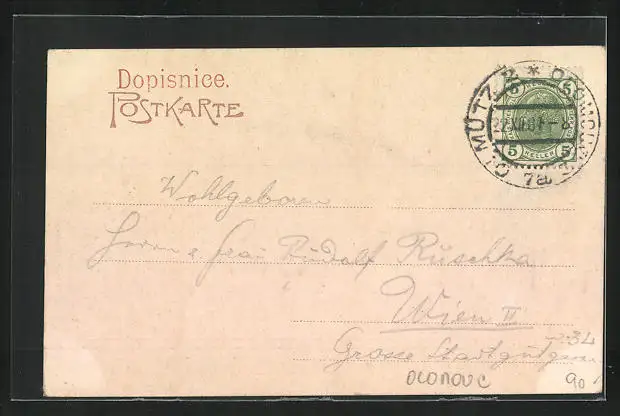 Dopisnice.
POSTKARTE
5 5
OLMÜTZ 2 * OLOMOUC
5 HELLER 5
7a
Wohlgeboren
Herrn & Frau Rudolf Ruschka
Wien II
34
Grosse Stadtgutgasse
OLOMOUC
90